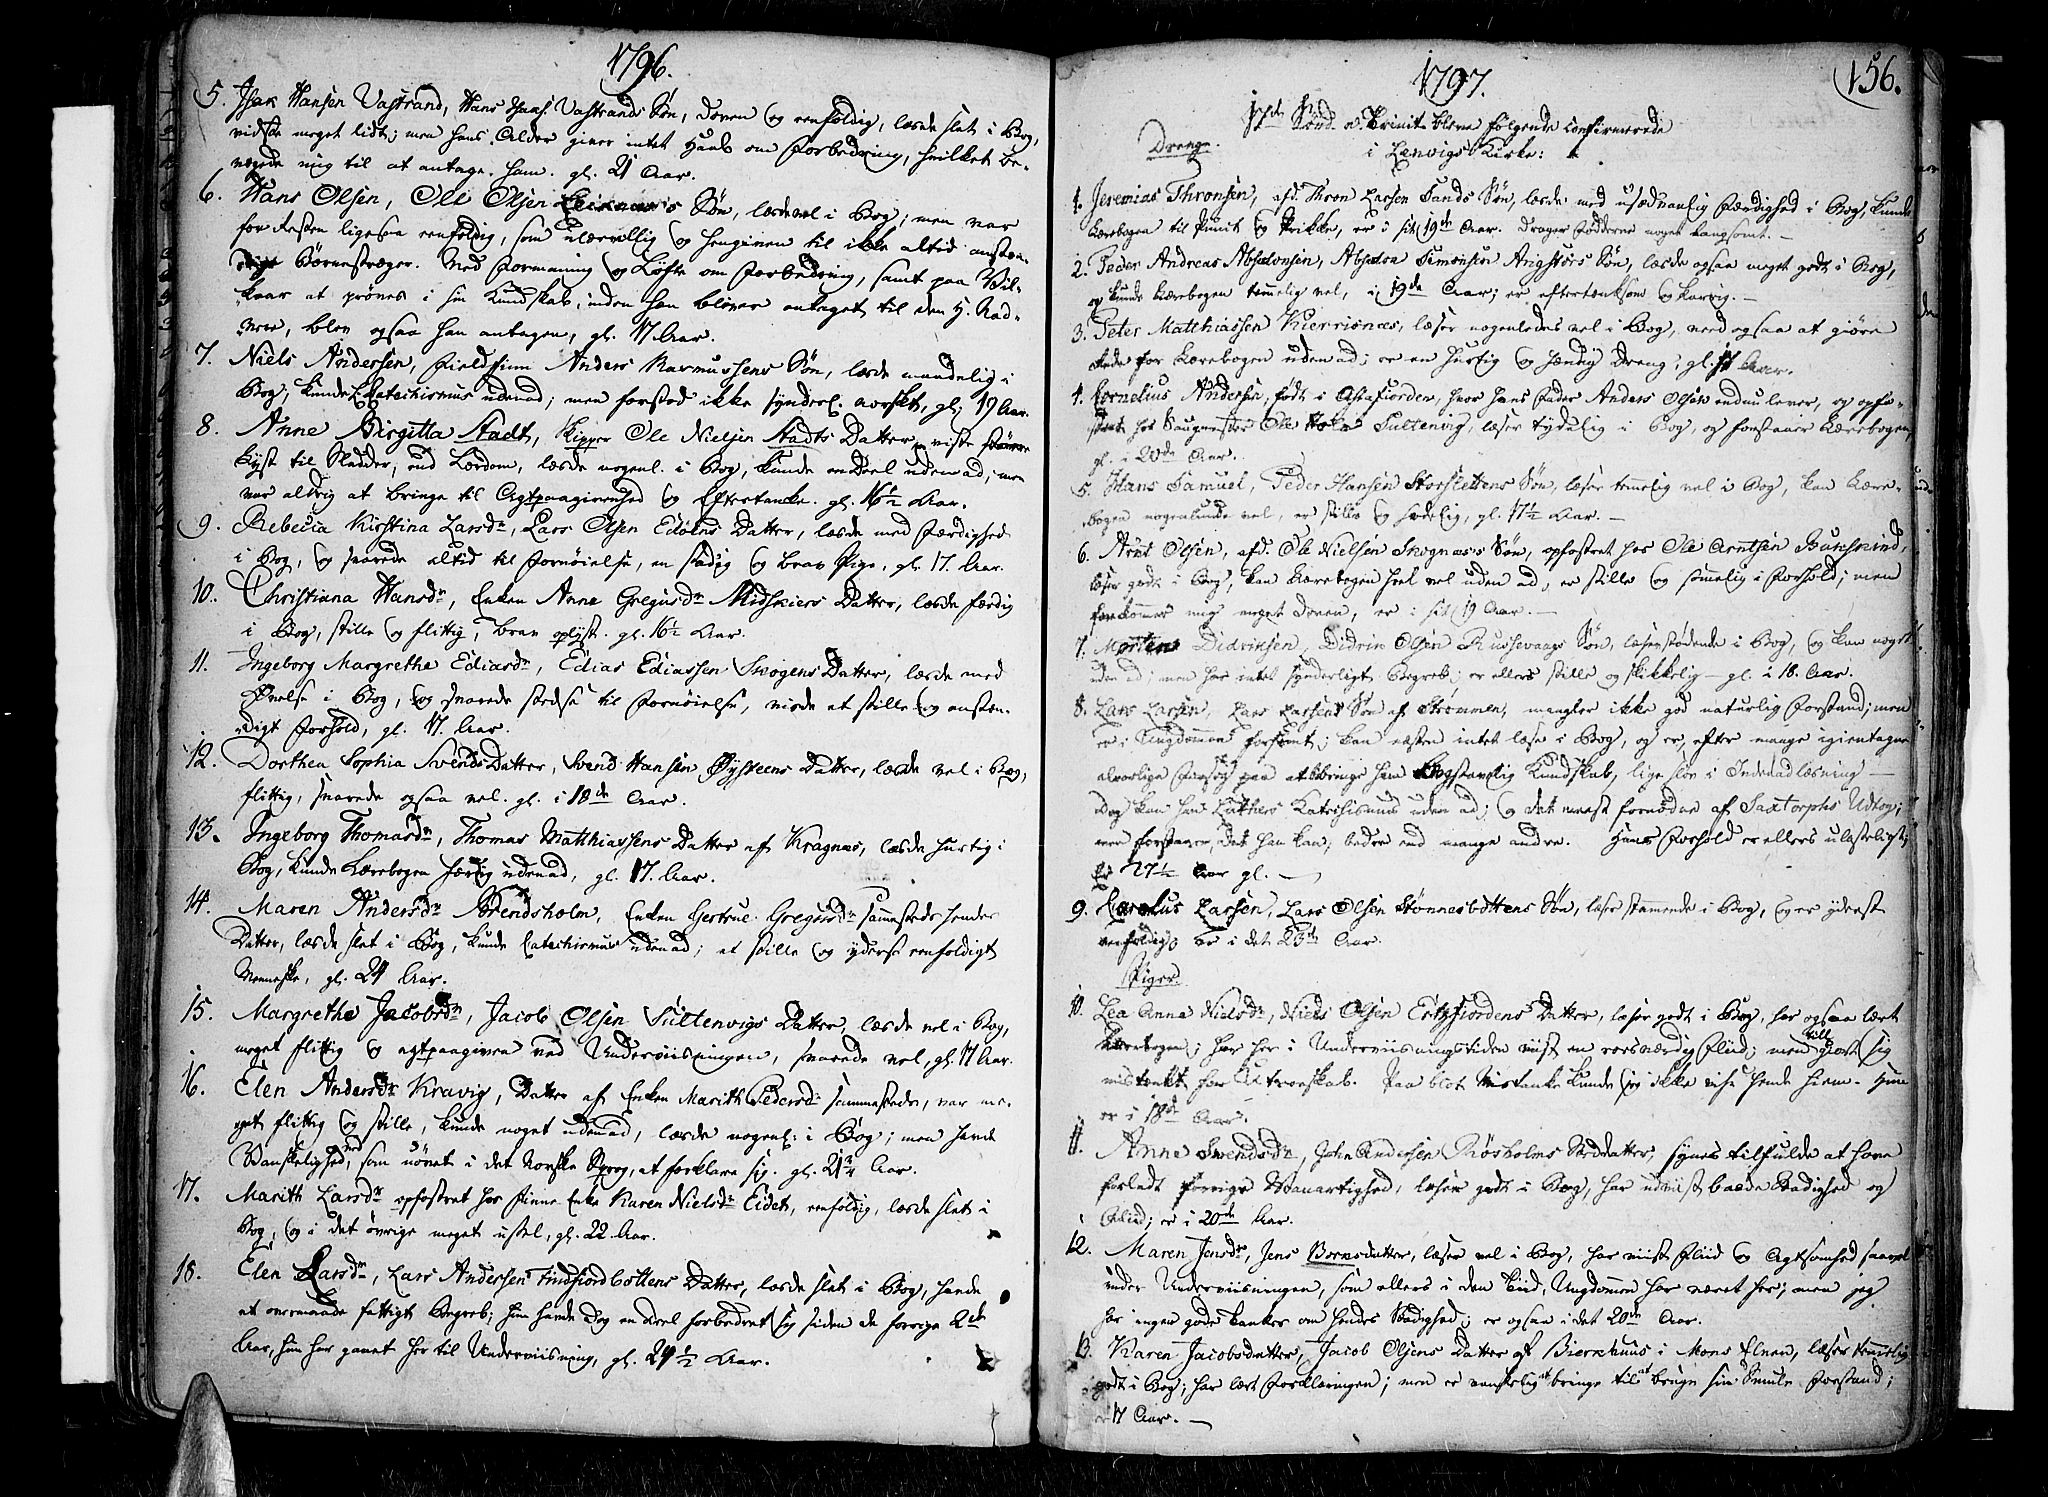 1796.
5. Isak Hansen Vastrand, Hans Isach. Vastrands Søn, doven og eenfoldig, læsde slet i Bog,
vidste meget lidt; men hans Alder giver intet Haab om Forbedring, hvilket be-
vegede mig til at antage ham. gl. 21 Aar.
6. Hans Olsen, Ole Olsen Leiknæs's Søn, læsde vel i Bog; men var
for Resten ligesaa eenfoldig, som ulærvillig og hengiven til ikke altid anstæn-
dige Børnestræger. Med Formaning og Løfte om Forbedring, samt paa Vil-
kaar at prøves i sin Kundskab, inden han bliver antaget til den H. Nad-
vere, blev ogsaa han antagen, gl. 17 Aar.
7. Niels Andersen, Fieldfinn Anders Rasmussens Søn, læsde maadelig i
Bog, kunde Catechismus udenad; men forstod ikke synderl. norskt, gl. 19 Aar.
8. Anne Birgitta Stadt, Skipper Ole Nielsen Stadts Datter, viste større
Lyst til Sladder, end Lærdom, læsde nogenl. i Bog, kunde en Deel udenad, men
var aldrig at bringe til Agtpaagivenhed og Eftertanke. gl. 16½ Aar.
9. Rebecca Kirstina Larsdr, Lars Olsen Edoens Datter, læsde med Færdighed
i Bog, og svarede altid til Fornøielse, en stadig og brav Pige, gl. 17. Aar.
10. Christiana Hansdr, Enken Anne Gregusdr Midskiers Datter, læsde færdig
i Bog, stille og flittig, brav oplyst. gl. 16½ Aar.
11. Ingeborg Margrethe Ediasdr, Edias Ediassen Skogens Datter, læsde med
Øvelse i Bog, og svarede stedse til Fornøielse, viste et stille og anstæn-
digt Forhold, gl. 17. Aar.
12. Dorthea Sophia SvendsDatter, Svend Hansen Øysteens Datter, læsde vel i Bog,
flittig, svarede ogsaa vel. gl. i 18de Aar.
13. Ingeborg Thomasdr, Thomas Matthiassens Datter af Kragnæs, læsde hurtig i
Bog, kunde Lærebogen færdig udenad, gl. 17. Aar.
14. Maren Andersdr Svendsholm, Enken Gertrue Gregusdr sammesteds hendes
Datter, læsde slet i Bog, kunde Catechismus udenad; et stille og yderst eenfoldigt
Menneske, gl. 24 Aar.
15. Margrethe Jacobsdr, Jacob Olsen Sultenvigs Datter, læsde vel i Bog,
meget flittig og agtpaagiven ved Underviisningen, svarede vel, gl. 17 Aar.
16. Elen Andersdr Kravig, Datter af Enken Marith Pedersdr sammesteds, var me-
get flittig og stille, kunde noget udenad, læsde nogenl. i Bog; men havde
Vanskelighed ved, som uøvet i det Norske Sprog, at forklare sig. gl. 21¾ Aar.
17. Marith Larsdr opfostret hos Finne Enke Karen Nielsdr Eidet, eenfoldig, læsde slet i
Bog, og i det øvrige meget ussel, gl. 22 Aar.
18. Elen Larsdr, Lars Andersen Findfiordbottens Datter, læsde slet i Bog, havde
et overmaade fattigt Begreb; hun havde dog en Deel forbedret sig siden de forrige 2de
Aar, hun har gaaet her til Underviisning, gl. 24½ Aar.
1797.
156.
17de Sønd. a. Trinit. bleve følgende Confirmerede
Drenge. i Lenvigs Kirke:
1. Jeremias Thronsen, afd. Thron Larsen Sands Søn, læsde med usædvanlig Færdighed i Bog, kunde
Lærebogen til Punct og Prikke, er i sit 19de Aar. drager Fødderne noget langsomt. —
2. Peder Andreas Absalonsen, Absalon Simonsen Angsfors Søn, læsde ogsaa meget godt i Bog,
og kunde Lærebogen temmelig vel, i 19de Aar; er eftertænksom og . —
3. Peter Matthiassen Kierrisnæs, læser nogenledes vel i Bog, veed ogsaa at giøre
Rede for Lærebogen udenad; er en hurtig og hændig Dreng, gl. 17 Aar.
4. Cornelius Andersen, født i Astafiorden, hvor hans Fader Anders Olsen endnu lever, og opfo-
stret hos Saugmester Ole Sultenvig, læser tydelig i Bog, og forstaaer Lærebogen,
gl. i 20de Aar.
5. Hans Samuel, Peder Hansen Storslettens Søn, læser temmelig vel i Bog, kan Lære-
bogen nogenlunde vel, er stille og sædelig, gl. 17½ Aar. —
6. Arnt Olsen, afd. Ole Nielsen Skognæs's Søn, opfostret hos Ole Arntsen Bukskind,
læser godt i Bog, kan Lærebogen heel vel uden ad, er stille og sømmelig i Forhold; men
forekommer mig noget doven, er i sit 19 Aar. —
7. Morten Didriksen, Didrik Olsen Russevaags Søn, læser stødende i Bog, og kan noget
uden ad; men har intet synderligt Begreb; er ellers stille og skikkelig — gl. i 18. Aar.
8. Lars Larsen, Lars Larsens Søn af Strømmen, mangler ikke god naturlig Forstand; men
er i Ungdommen forsømt; kan næsten intet læse i Bog, og er, efter mange igientagne
alvorlige Forsøg paa at bibringe ham Bogstavelig Kundskab, lige sløv i Indenadlæsning —
Dog kan han Luthers Katechismus uden ad; og det meest fornødne af Saxtorphs Udtog;
men forstaaer, det han kan, bedre end mange andre. Hans Forhold er ellers ulasteligt;
Er 27½ Aar gl. —
9. Carolus Larsen, Lars Olsen Stønnesbottens Søn, læser stammende i Bog, og er yderst
eenfoldig; er i det 23de Aar.
Piger.
10. Lea Anna Nielsdr, Niels Olsen Ertzfiordens Datter, læser godt i Bog, har ogsaa lært
Lærebogen; har her i Underviisningstiden viist en roesværdig Fliid; men vil giort sig
mistænkt for Utroeskab. Paa blot Mistanke kunde jeg ikke vise hende hiem. Hun
er i 18de Aar.
11. Anne Svendsdr, John Andersen Røsholms Stifdatter, synes tilfulde at have
forladt forrige Vanartighed, læser godt i Bog, har udviist baade Stadighed og
Fliid; er i 20de Aar.
12. Maren Jensdr, Jens Borns datter, læser vel i Bog, har viist Fliid og Agtsomhed saavel
under Underviisningen, som ellers i den Tiid, Ungdommen har været her; men jeg
har ingen gode Tanker om hendes Stadighed; er ogsaa i det 20de Aar.
13. Karen Jacobsdatter, Jacob Olsens Datter af Bierkhuus i Mons Elven, læser temmelig
godt i Bog; har lært Forklaringen; men er vanskelig at bringe til at bruge sin Smule Forstand;
er 17 Aar. —